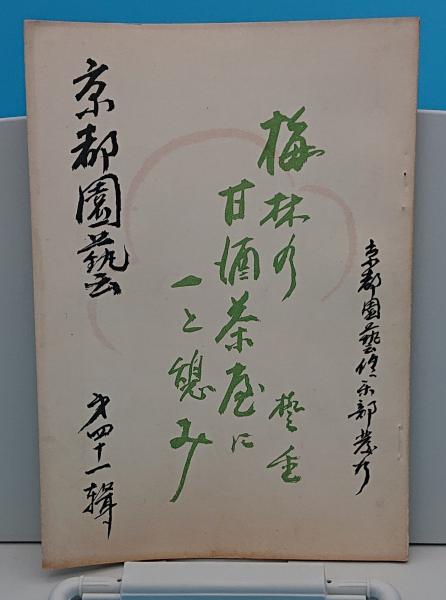 京都園藝倶楽部發行
梅林の
甘酒茶屋に
一と憩み
京都園藝 第四十一輯